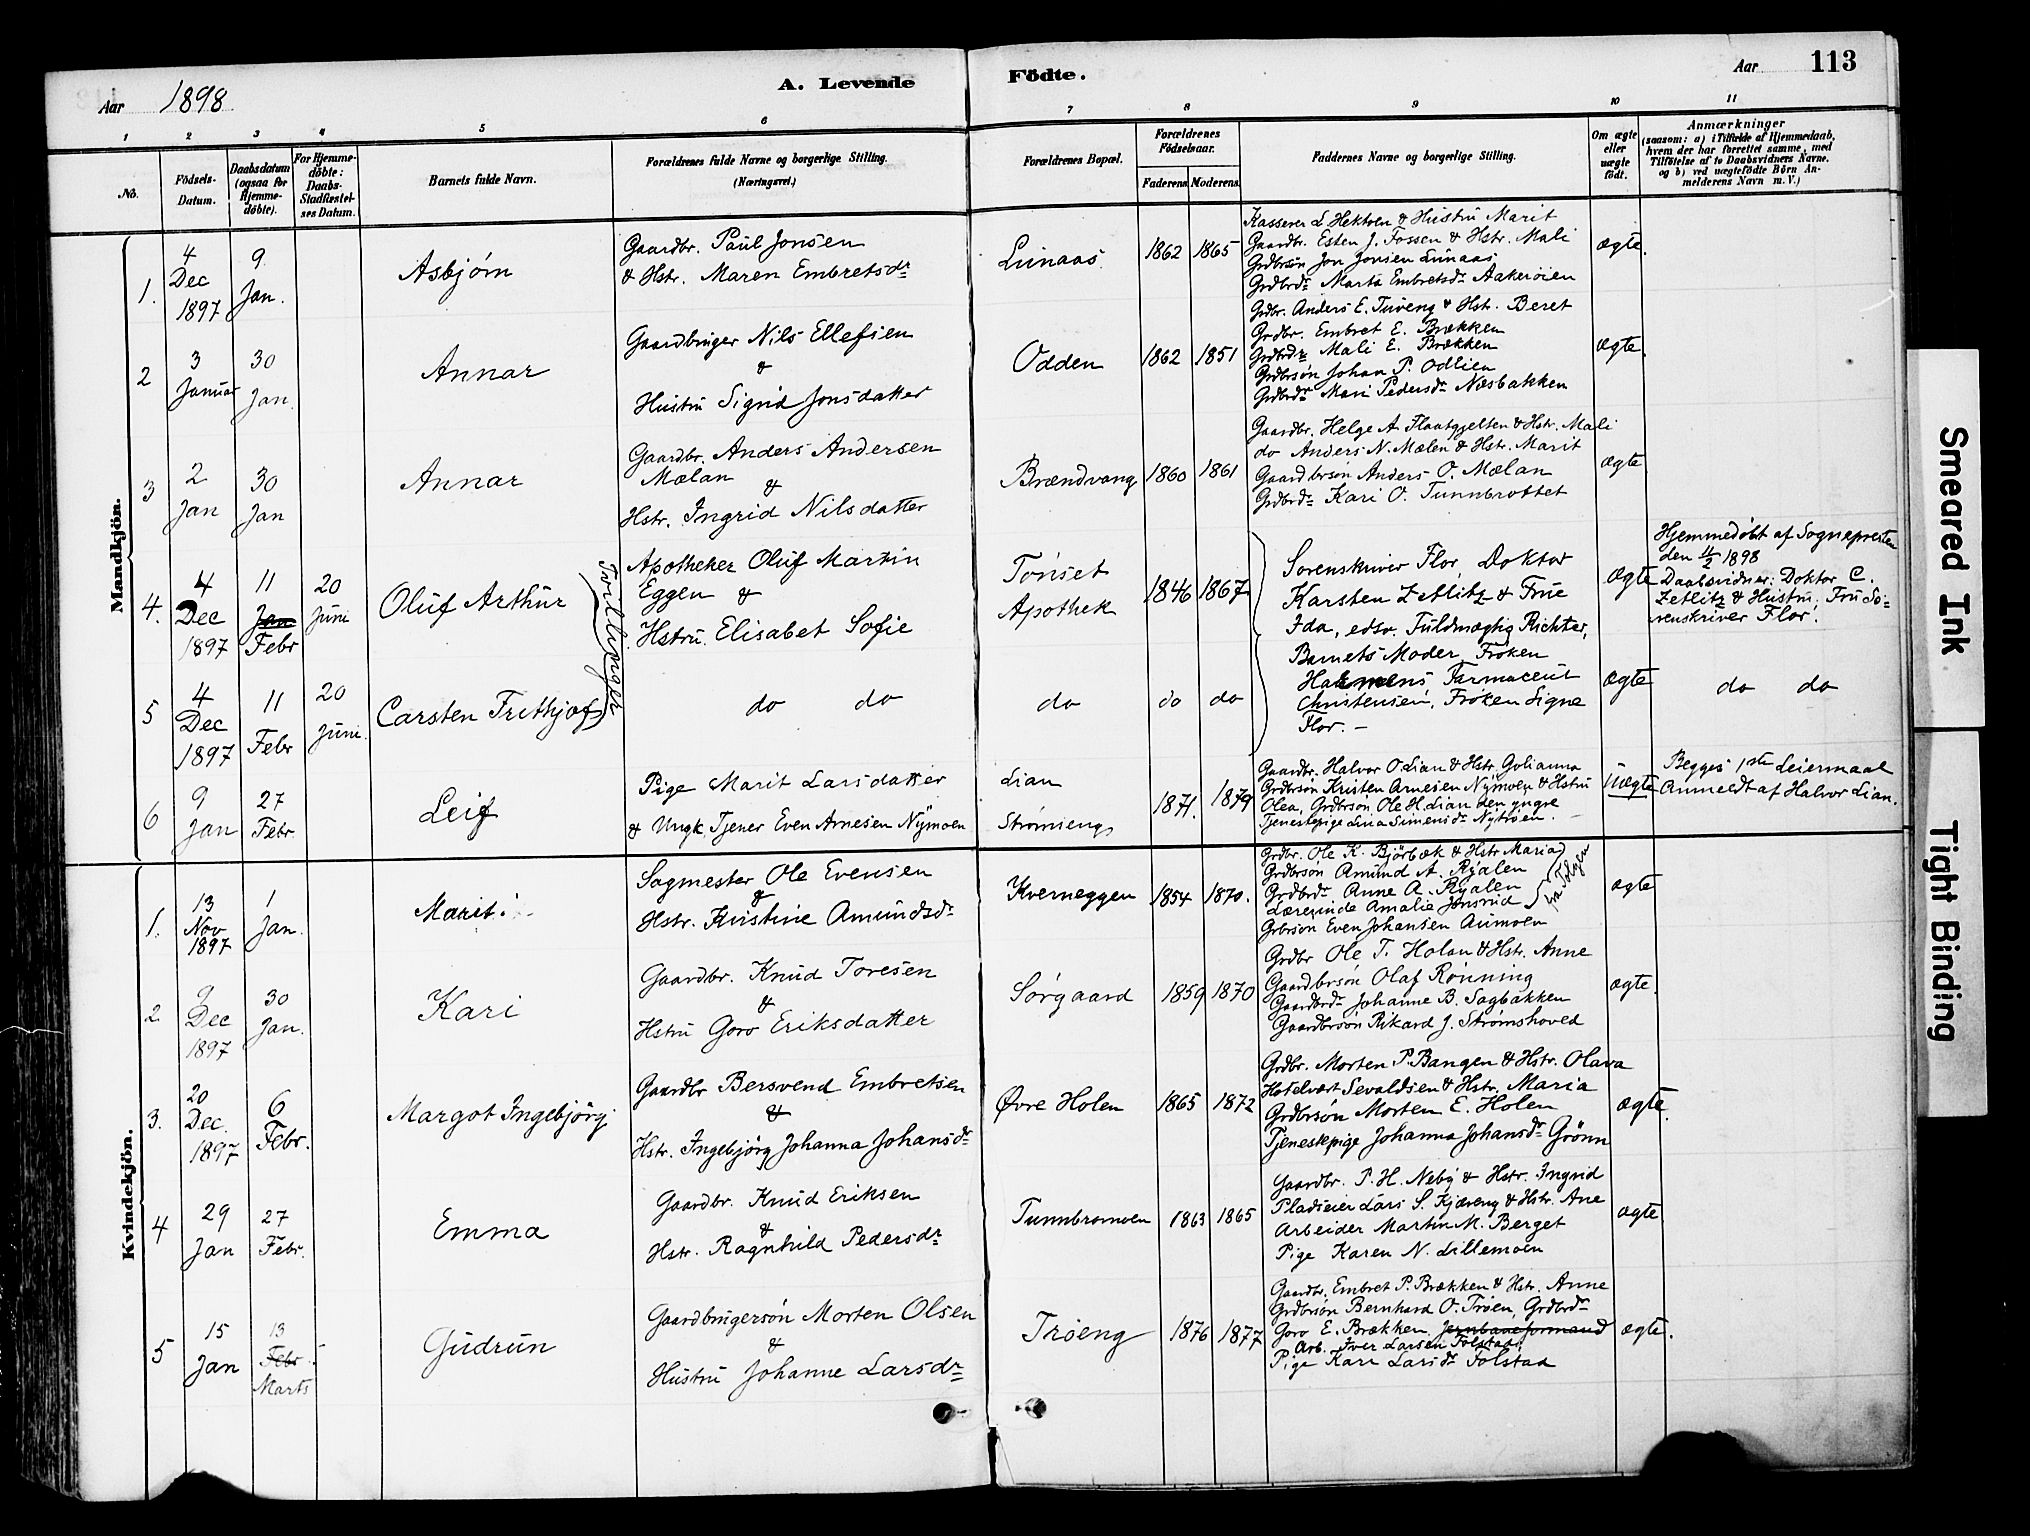 Aar 1898.
A. Levende
Födte.
Aar 113
1 2 3 4 5 6 7 8 9 10 11
No.
Födsels-
Datum.
Daabsdatum
(ogsaa for
Hjemme-
döbte).
For Hjemme-
döbte:
Daabs-
Stadfæstel-
ses Datum.
Barnets fulde Navn.
Forældrenes fulde Navne og borgerlige Stilling.
(Næringsvei.)
Forældrenes Bopæl.
Forældrenes
Födselsaar.
Faderens. Moderens.
Faddernes Navne og borgerlige Stilling.
Om ægte
eller
uægte
födt.
Anmærkninger
(saasom: a) i Tilfælde af Hjemmedaab,
hvem der har forrettet samme, med
Tilföielse af to Daabsvidners Navne.
og b) ved uægtefödte Börn An-
melderens Navn m. V.)
Mandkjön.
1.
4
Dec
1897
9
Jan.
Asbjørn
Gaardbr. Paul Jonsen
& Hstr. Maren Embretsdr
Lunaas.
1862 1865
Kasserer L Hektoen & Hustru Marit
Gaardbr. Esten J. Fossen & Hstr. Mali
Grdbrsön Jon Jonsen Lunaas
Grdbrdr Marta Embretsdr Aakerøien
ægte.
2
3
Januar
30
Jan.
Annar
Gaardbruger Nils Ellefsen
&
Hustru Sigrid Jonsdatter
Odden
1862 1851
Grdbr. Anders E. Tuveng & Hstr. Beret
Grdbr. Embret E. Brækken
Grdbrdr Mali E. Brækken
Grdbrsön Johan P. Odlien
Grdbrdr Mari Pedersdr Næsbakken
ægte.
3
2
Jan
30
Jan
Annar
Gaardbr. Anders Andersen
Mælan &
Hstr. Ingrid Nilsdatter
Brændvang
1860 1861
Gaardbr. Helge A Flaatgjelten & Hstr. Mali
do Anders N. Mælen & Hstr. Marit
Gaardbrsön Anders O. Mælan
Grdbrdr Kari O. Tunnbrottet
ægte
4.
4
Dec
1897
11
Jan
Febr
20
Juni
Oluf Arthur
Tvillinger
Apotheker Oluf Martin
Eggen &
Hstru. Elisabet Sofie
Tønset
Apothek
1846 1867
Sorenskriver Flor, Doktor
Karsten Zetlitz & Frue
Ida, edsv. Fuldmægtig Richter,
Barnets Moder, Frøken
ægte
Hjemmedøbt af Sognepresten
den 11/2 1898
Daabsvidner: Doktor C.
Zetlitz & Hustru; Fru So=
renskriver Flor.
5
4
Dec
1897
11
Febr
20
Juni.
Carsten Frithjof
do do
do
do do
Farmaceut
Christensen, Frøken Signe
Flor. –
ægte
do do
6
9
Jan
27
Febr.
Leif
Pige Marit Larsdatter
& Ungk. Tjener Even Arnesen Nymoen
Lian
Strømseng
1871. 1879
Gaardbr. Halvor O. Lian & Hstr. Golianna
Grdbrsön Kristen Arnesen Nymoen & Hstru
Olea, Grdbrsön Ole H. Lian den yngre
Tjenestepige Lina Simensdr Nytrøen.
Uægte
Begges 1ste Leiermaal
Anmeldt af Halvor Lian.
Kvindekjön.
1.
13
Nov
1897
1
Jan.
Marit
Sagmester Ole Evensen
&
Hstr. Kristine Amundsdr
Kverneggen
1854 1870.
Grdbr. Ole K. Bjørbæk & Hstr Maria
Grdbrsön Amund A. Ryalen
Grdbrdr Anne A. Ryalen
Lærerinde Amalie Jonsrud
Grbrson Even Johansen Aumoen
fra Tolgen
ægte
2
9
Dec
1897
30
Jan.
Kari
Gaardbr. Knud Toresen
&
Hstru Goro Eriksdatter
Sørgaard
1859 1870
Grdbr Ole T. Holan & Hstr. Anne
Gaardbrsön Olaf Rønning
Gaardbrdr Johanne B. Sagbakken
Gaardbrsön Rikard J. Strømshoved
ægte.
3.
20
Dec.
1897
6
Febr.
Margot Ingebjörg
Gaardbr Bersvend Embretsen
&
Hstr. Ingebjörg Johanna Johansdr
Øvre Holen
1865 1872
Grdbr. Morten P. Bangen & Hstr. Olava
Hotelvært Sevaldsen & Hstr. Maria
Grdbrsön Morten E. Holen
Tjenestepige Johanna Johansdr Grönn
ægte.
4
29
Jan
27
Febr.
Emma
Gaardbr. Knud Eriksen
&
Hstr. Ragnhild Pedersdr
Tunnbromoen
1863 1865
Gaardbr. P. H. Neby & Hstr. Ingrid
Pladseier Lars S. Kjæreng & Hstr. Ane
Arbeider Martin M. Berget
Pige Karen N. Lillemoen
ægte
5
15
Jan
13
Febr.
Marts
Gudrun
Gaardbrugersön Morten Olsen
&
Hustru Johanne Larsdr
Trøeng
1876 1877
Gaardbr. Embret P. Brækken & Hstr. Anne
Grdbrsön Bernhard O. Trøen, Grdbrdr
Goro E. Brækken, Jernbaneformand
Arb. Iver Larsen Tolstad,
Pige Kari Larsdr Tolstad
ægte.
Smeared Ink
Tight Binding